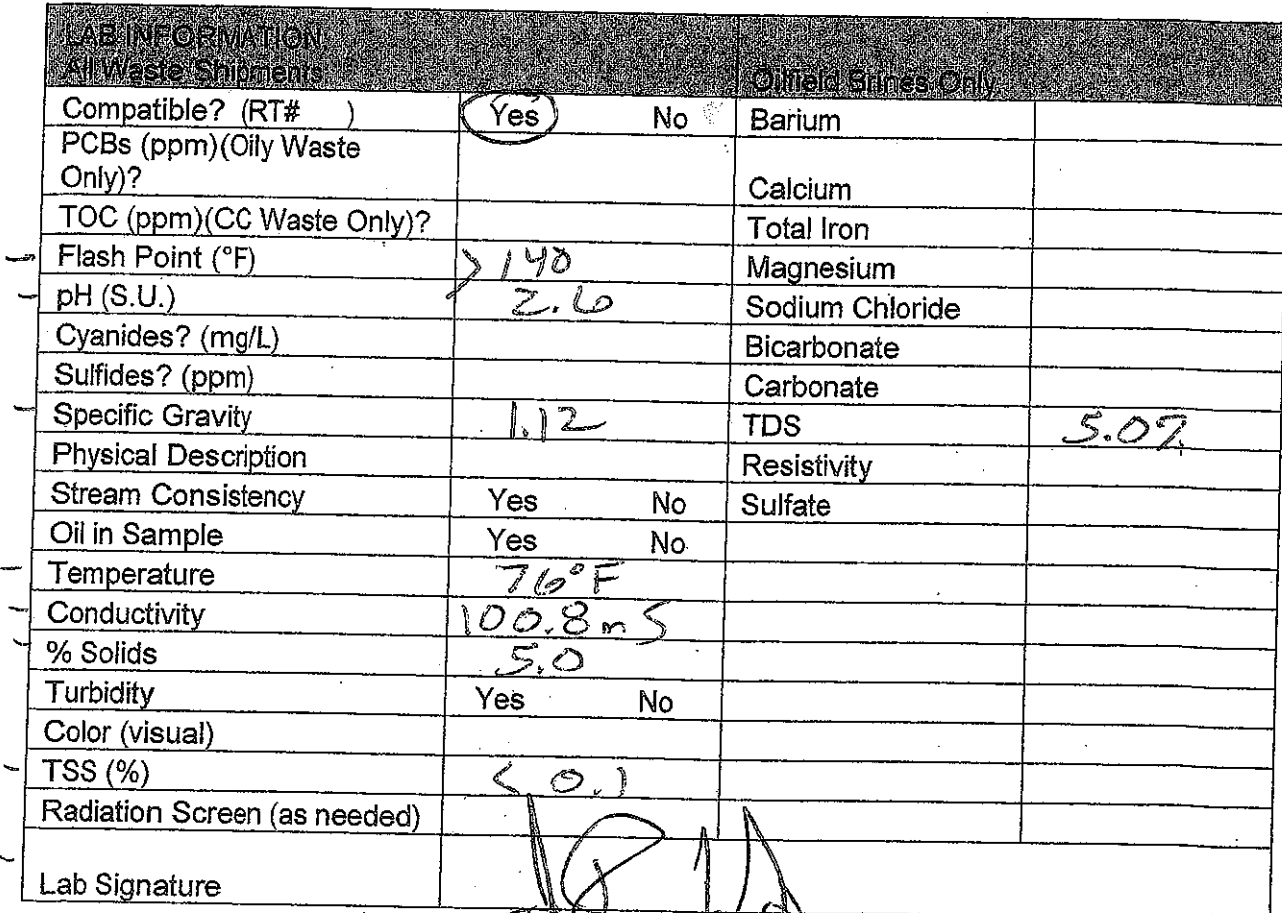 LAB INFORMATION
All Waste Shipments Oilfield Brines Only
Compatible? (RT# ) Yes No Barium
PCBs (ppm)(Oily Waste
Only)? Calcium
TOC (ppm)(CC Waste Only)? Total Iron
Flash Point (°F) >140 Magnesium
pH (S.U.) 2.6 Sodium Chloride
Cyanides? (mg/L) Bicarbonate
Sulfides? (ppm) Carbonate
Specific Gravity 1.12 TDS 5.0%
Physical Description Resistivity
Stream Consistency Yes No Sulfate
Oil in Sample Yes No
Temperature 76°F
Conductivity 100.8 mS
% Solids 5.0
Turbidity Yes No
Color (visual)
TSS (%) <0.1
Radiation Screen (as needed)
Lab Signature